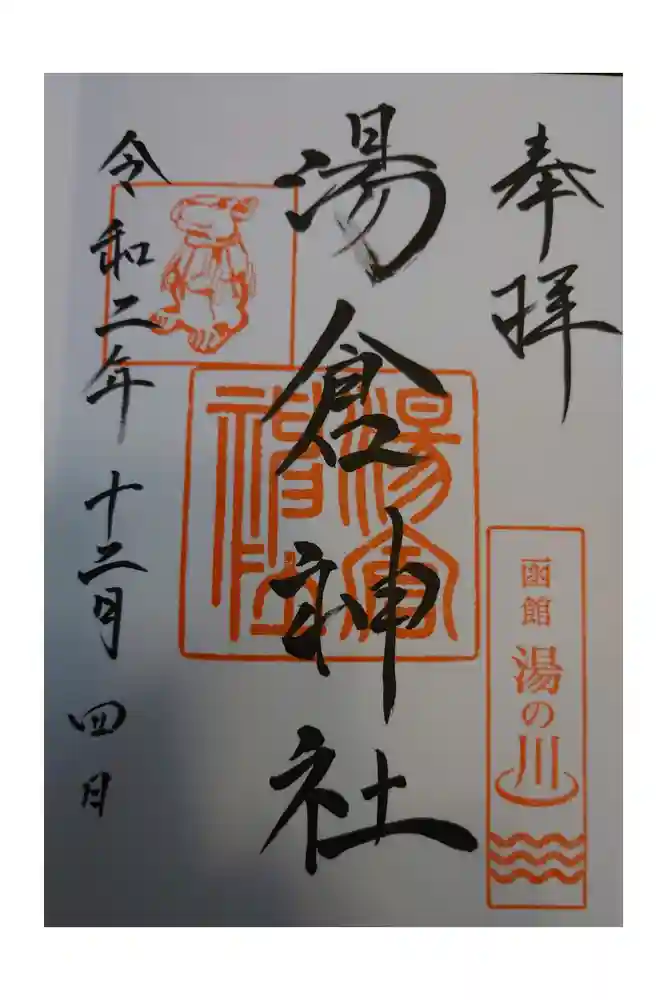 奉拝
湯倉神社
令和二年十二月四日
湯倉神社
函館
湯の川